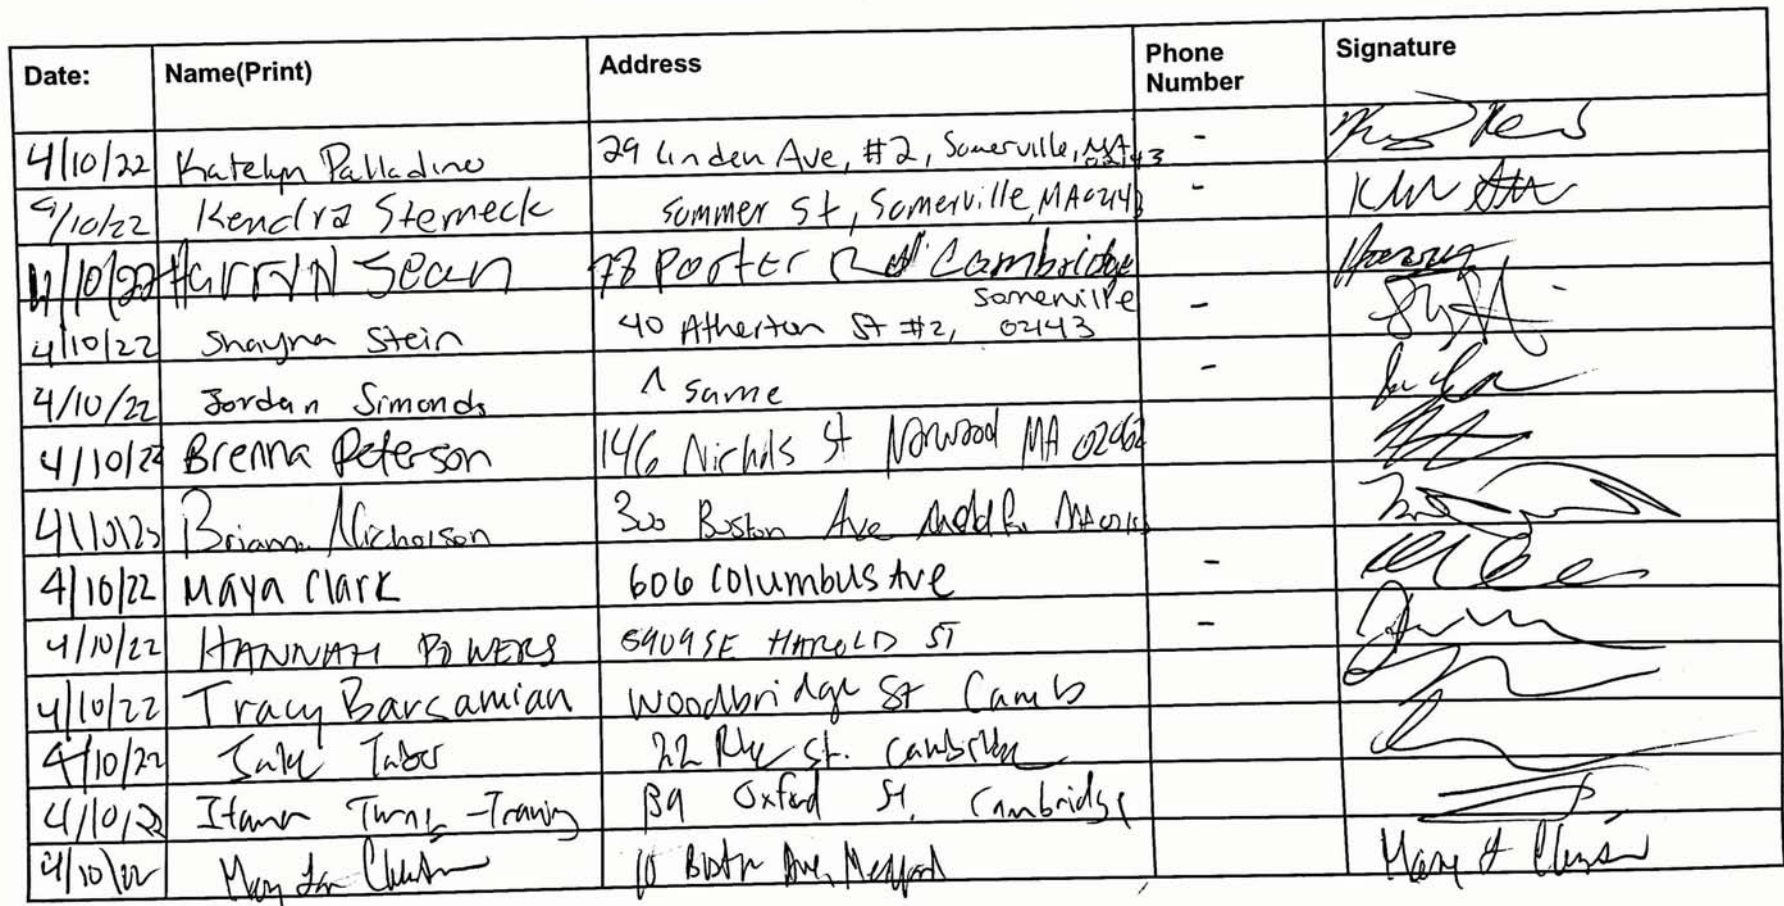 Date: Name(Print) Address Phone Number Signature
4/10/22 Katelyn Palladino 29 Linden Ave, #2, Somerville, MA 02143 -
4/10/22 Kendra Sterneck Summer St, Somerville, MA 02143 -
4/10/22 Sean 78 Porter Rd Cambridge
4/10/22 Shayna Stein 40 Atherton St #2, Somerville 02143 -
4/10/22 Jordan Simonds ^ same -
4/10/22 Brenna Peterson 146 Nichols St Norwood MA 02062
4/10/22 Nicholson 300 Boston Ave Medford MA
4/10/22 Maya Clark 606 Columbus Ave -
4/10/22 HANNAH POWERS 5909 SE HAROLD ST -
4/10/22 Tracy Barsamian Woodbridge St Camb
4/10/22 Jake Tabor 22 St. Cambridge
4/10/22 Itamar Oxford St, Cambridge
4/10/22 Mary 10 Boston Ave, Medford Mary